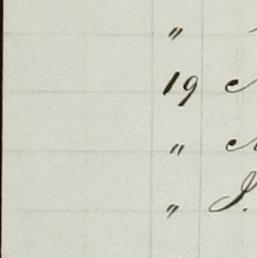 "
19
"
" J.